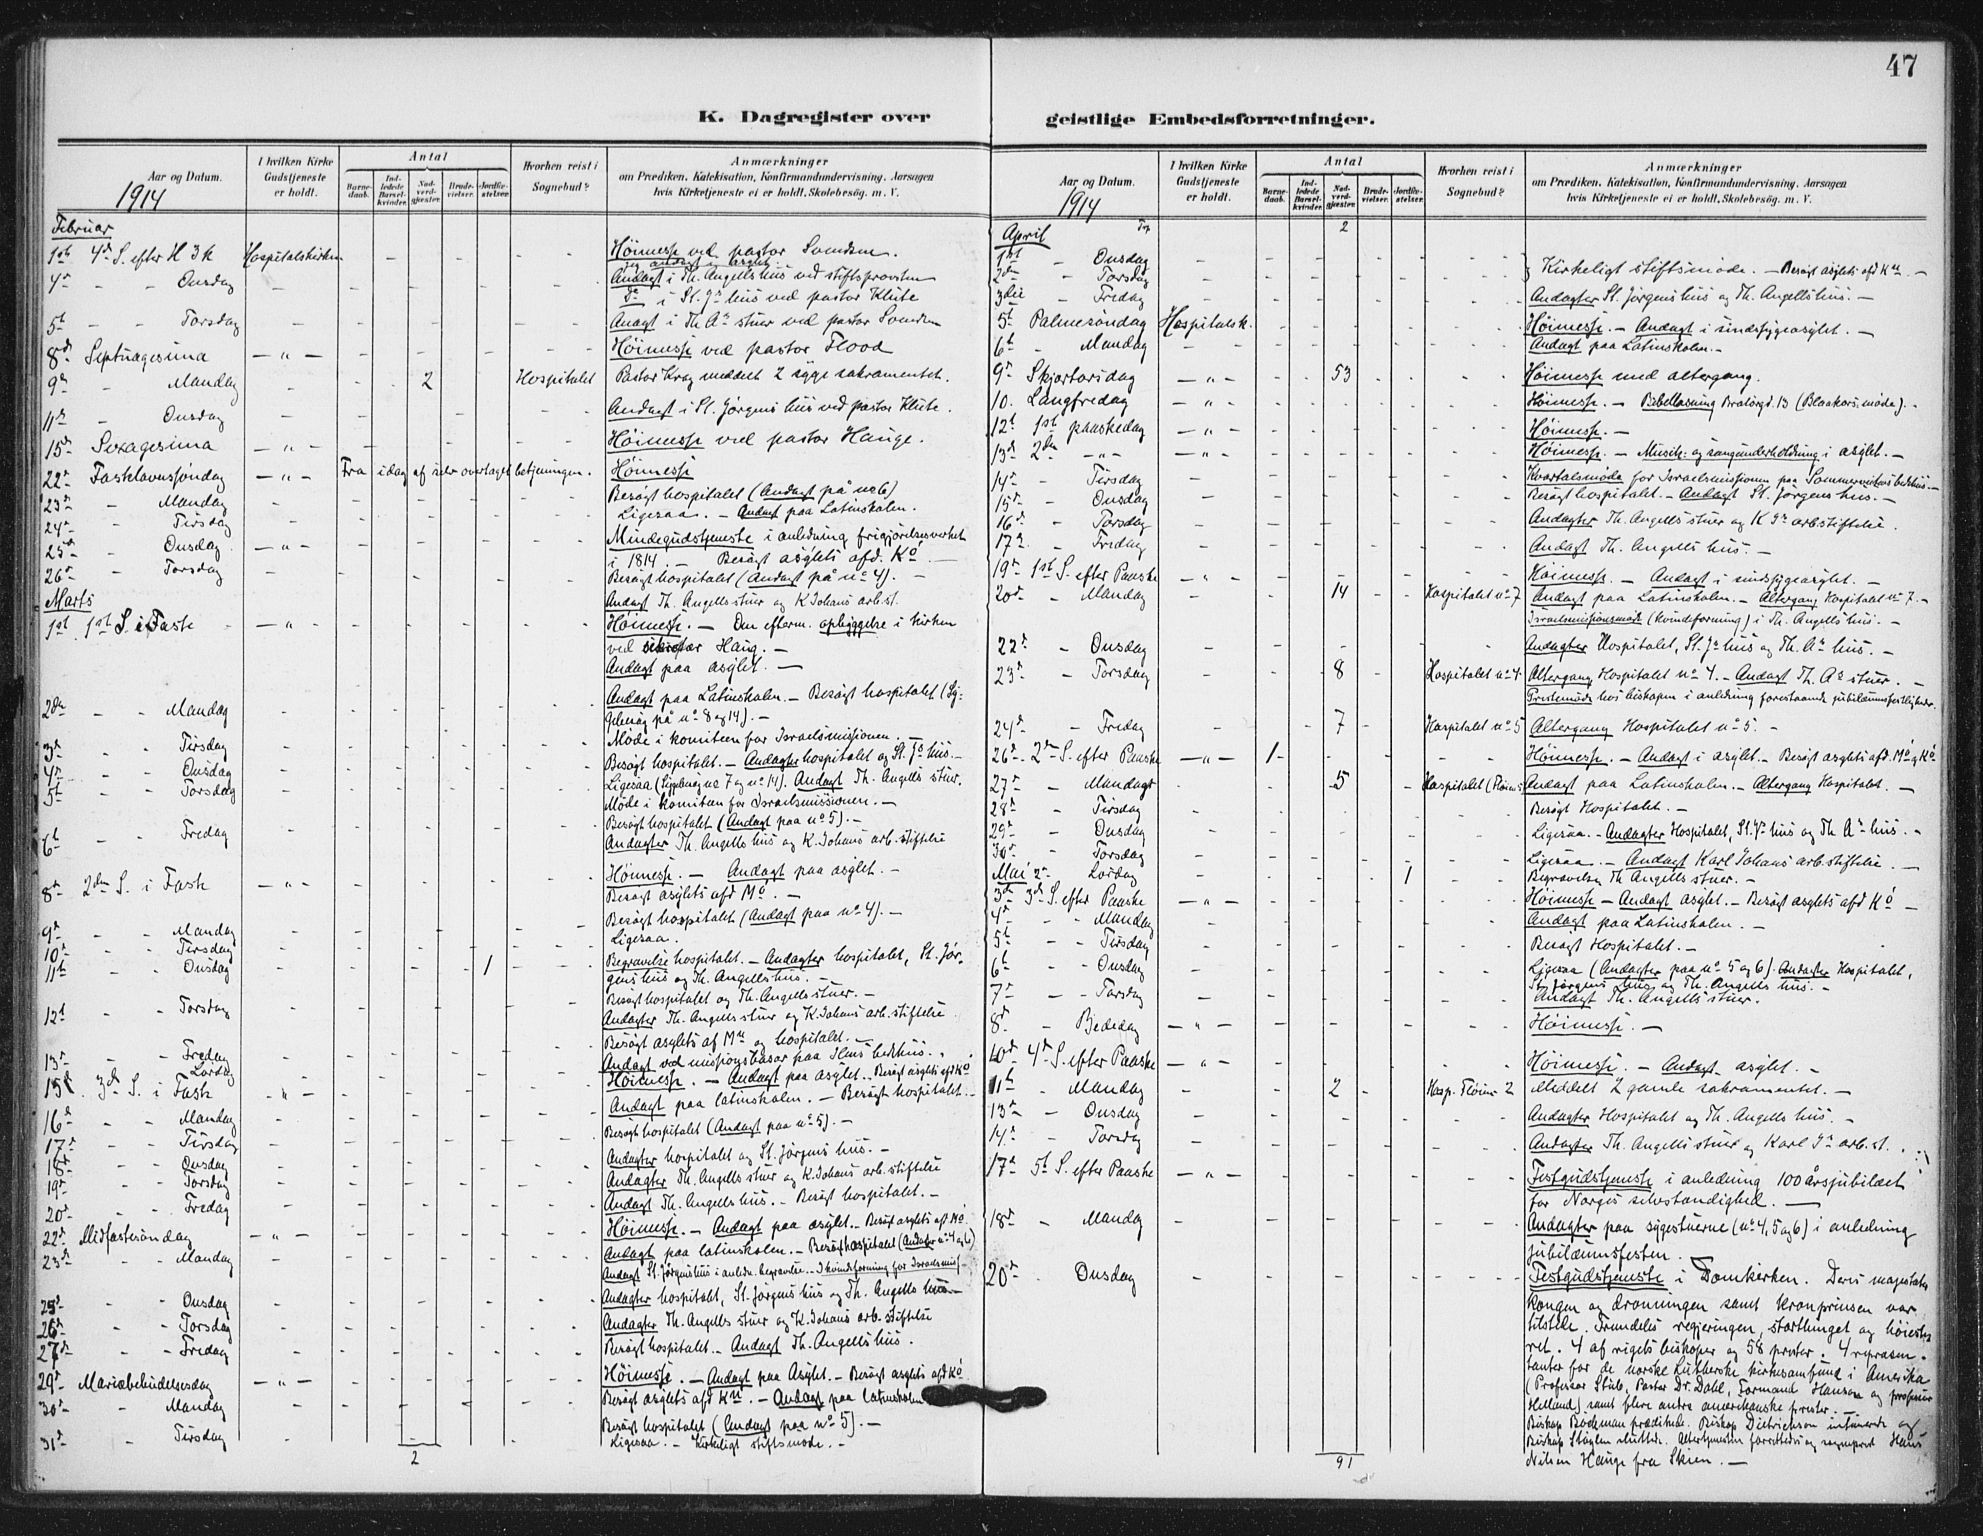 47
K. Dagregister over
geistlige Embedsforretninger.
Aar og Datum.
1914
I hvilken Kirke Gudstjeneste er holdt.
Antal
Barnedaab.
Indledede Barselkvinder.
Nadverdgjester.
Brudevielser.
Jordfæstelser.
Hvorhen reist i Sognebud?
Anmærkninger
om Prædiken, Katekisation, Konfirmandundervisning, Aarsagen
hvis Kirketjeneste ei er holdt, Skolebesøg, m. V.
Februar
1ste 4de S. efter H 3 k Hospitalskirken Høimesse ved pastor Svendsen.
4de Onsdag Andagt i Th. Angells hus ved stiftsprovsten
Do i St. Js hus ved pastor Klüte
5te Torsdag Andagt i Th. As stuer ved pastor Svendsen
8de Septuagesima — " — Høimesse ved pastor Flood
9de Mandag 2 Hospitalet Pastor Krag meddelt 2 syge sakramentet.
11te Onsdag Andagt i St. Jørgens hus ved pastor Klüte.
15de Sexagesima — " — Høimesse ved pastor Hauge.
22de Fastelavnssøndag — " — Fra idag af selv overtaget betjeningen. Høimesse
23de Mandag Besøgt hospitalet (Andagt på no 6)
24de Tirsdag Ligesaa. — Andagt paa Latinskolen.
25de Onsdag — " — Mindegudstjeneste i anledning frigjørelsesverket
i 1814. — Besøgt asylets afd. Kö. —
26de Torsdag Besøgt hospitalet (Andagt på no 4). —
Andagt Th. Angells stuer og K Johans arb.st.
Marts
1ste 1ste S. i Faste — " — Høimesse. — Om efterm. opbyggelse i kirken
ved sekretær Haug. —
Andagt paa asylet. —
2den Mandag Andagt paa Latinskolen. — Besøgt hospitalet (Sy-
gebesøg på no 8 og 14). —
3de Tirsdag Møde i komiteen for Israelsmissionen. —
4de Onsdag Besøgt hospitalet. — Andagter hospitalet og St. Js hus. —
5te Torsdag Ligesaa (Sygebesøg no 7 og no 14). Andagt Th. Angells stuer.
Møde i komiteen for Israelsmissionen. —
6te Fredag Besøgt hospitalet (Andagt paa no 5). —
Andagter Th. Angells hus og K. Johans arb. stiftelse
8de 2den S. i Faste — " — Høimesse. — Andagt paa asylet. —
Besøgt asylets afd Mö. —
9de Mandag Besøgt hospitalet (Andagt paa no 4). —
10de Tirsdag Ligesaa.
11te Onsdag 1 Begravelse hospitalet. — Andagter hospitalet, St. Jør-
gens hus og Th. Angells hus.
12te Torsdag Besøgt hospitalet og Th. Angells stuer. —
Andagter Th. Angells stuer og K. Johans arb. stiftelse.
13de Fredag Besøgt asylets af Mn og hospitalet. —
Lørdag Andagt ved missionsbasar paa Ilens bedehus.
15de 3de S. i Faste " — Høimesse. — Andagt paa asylet. — Besøgt asylets afd Kö
16de Mandag Andagt paa latinskolen. — Besøgt hospitalet. —
17de Tirsdag Besøgt hospitalet (Andagt paa no 5). —
18de Onsdag Andagter hospitalet og St. Jørgens hus. —
19de Torsdag Andagter Th. Angells stuer og K. Johans arb. stiftelse
20de Fredag Andagt Th. Angells hus. — Besøgt hospitalet. —
22de Midfastesøndag — " — Høimesse. — Andagt paa asylet. — Besøgt asylets afd Mö.
23de Mandag Andagt paa latinskolen. — Besøgt hospitalet (Andagter no 4 og 6)
Andagt St. Jørgens hus i anledn. begravelse. — I kvindeforening for Israelsmiss. —
25de Onsdag Andagter hospitalet, St. Jørgens hus og Th. Angells hus —
26de Torsdag Andagter Th. Angells stuer og K. Johans arb. stiftelse
27de Fredag Besøgt hospitalet. — Andagt Th. Angells hus.
29de Mariæbebudelsesdag — " — Høimesse. — Andagt paa Asylet. — Besøgt asylets afd Kö
30te Mandag Besøgt asylets afd Kn. — Andagt paa latinskolen
Besøgt hospitalet (Andagt paa no 5). —
31te Tirsdag Ligesaa. — Kirkeligt stiftsmøde. —
2
Aar og Datum.
1914
I hvilken Kirke Gudstjeneste er holdt.
Antal
Barnedaab.
Indledede Barselkvinder.
Nadverdgjester.
Brudevielser.
Jordfæstelser.
Hvorhen reist i Sognebud?
Anmærkninger
om Prædiken, Katekisation, Konfirmandundervisning, Aarsagen
hvis Kirketjeneste ei er holdt, Skolebesøg, m. V.
April Trp 2
1ste Onsdag
2den Torsdag } Kirkeligt stiftsmøde. — Besøgt asylets afd Kn. —
3die Fredag Andagter St. Jørgens hus og Th. Angells hus. —
5te Palmesøndag Hospitalsk. Høimesse. — Andagt i sindssygeasylet. —
6te Mandag Andagt paa Latinskolen. —
9de Skjærtorsdag — " — 53 Høimesse med altergang.
10. Langfredag — " — Høimesse. — Bibellæsning Bratørgd. 13 (Blaakors.møde). —
12te 1ste paaskedag — " — Høimesse. —
13de 2den — " — — " — Høimesse. — Musik- og sangunderholdning i asylet. —
14de Tirsdag Kvartalsmøde for Israelsmissionen paa bedehus. —
15de Onsdag Besøgt hospitalet. — Andagt St. Jørgens hus. —
16de Torsdag Andagter Th. Angells stuer og K Js arbstiftelse.
17de Fredag Andagt Th. Angells hus. —
19de 1ste S. efter Paaske — " — Høimesse. — Andagt i sindssygeasylet. —
20de Mandag 14 Hospitalet no 7 Andagt paa Latinskolen. — Altergang Hospitalet no 7. —
Israelsmissionsmøde (kvindeforening) i Th. Angells hus. —
22de Onsdag Andagter Hospitalet, St. Js hus og Th. As hus. —
23de Torsdag 8 Hospitalet no 4. Altergang Hospitalet no 4. — Andagt Th. As stuer. —
Præstemøde hos biskopen i anledning forestaaende jubilæumsfestligheder.
24de Fredag 7 Hospitalet no 5 Altergang Hospitalet no 5. —
26de 2den S. efter Paaske — " — 1 Høimesse. — Andagt i asylet. — Besøgt asylets afd. Mö og Kö
27de Mandag 5 Hospitalet Andagt paa Latinskolen. — Altergang Hospitalet. —
28de Tirsdag Besøgt Hospitalet. —
29de Onsdag Ligesaa. — Andagter Hospitalet, St. Js hus og Th As hus. —
30te Torsdag Ligesaa. — Andagt Karl Johans arb. stiftelse. —
Mai 2de Lørdag 1 Begravelse Th. Angells stuer. —
3de 3de S. efter Paaske — " — Høimesse — Andagt asylet. — Besøgt asylets afd Kö —
4de Mandag Andagt paa Latinskolen. —
5te Tirsdag Besøgt Hospitalet. —
6te Onsdag Ligesaa (Andagter paa no 5 og 6). Andagter Hospitalet,
St. Jørgens hus og Th. Angells hus. —
7de Torsdag Andagt Th. Angells stuer.
8de Bededag — " — Høimesse. —
10de 4de S. efter Paaske — " — Høimesse. — Andagt asylet. —
11te Mandag 2 Hosp. Fløien 2 Meddelt 2 gamle sakramentet. —
13de Onsdag Andagter Hospitalet og Th. Angells hus. —
14de Torsdag Andagter Th. Angells stuer og Karl Js arb. st.
17de 5te S. efter Paaske — " — Festgudstjeneste i anledning 100 årsjubilæet
for Norges selvstændighed. —
18de Mandag Andagter paa sygestuerne (no 4, 5 og 6) i anledning
jubilæumsfesten.
20de Onsdag Festgudstjeneste i Domkirken. Deres majestæter
kongen og dronningen samt kronprinsen var
tilstede. Fremdeles regjeringen, storthinget og høieste-
ret. 4 af rigets biskoper og 58 prester. 4 repræsen-
tanter for de norske lutherske kirkesamfund i Amerika
(Professor Stub, Pastor Dr. Dahl, Formand Hanson og professor
Helland) samt flere andre amerikanske prester. —
Biskop Bøckman prædikede. Biskop Dietrichson intonerede og
Biskop Støylen sluttede. Altertjenesten forrettedes og sogneprest Hans
Nielsen Hauge fra Skien. —
91